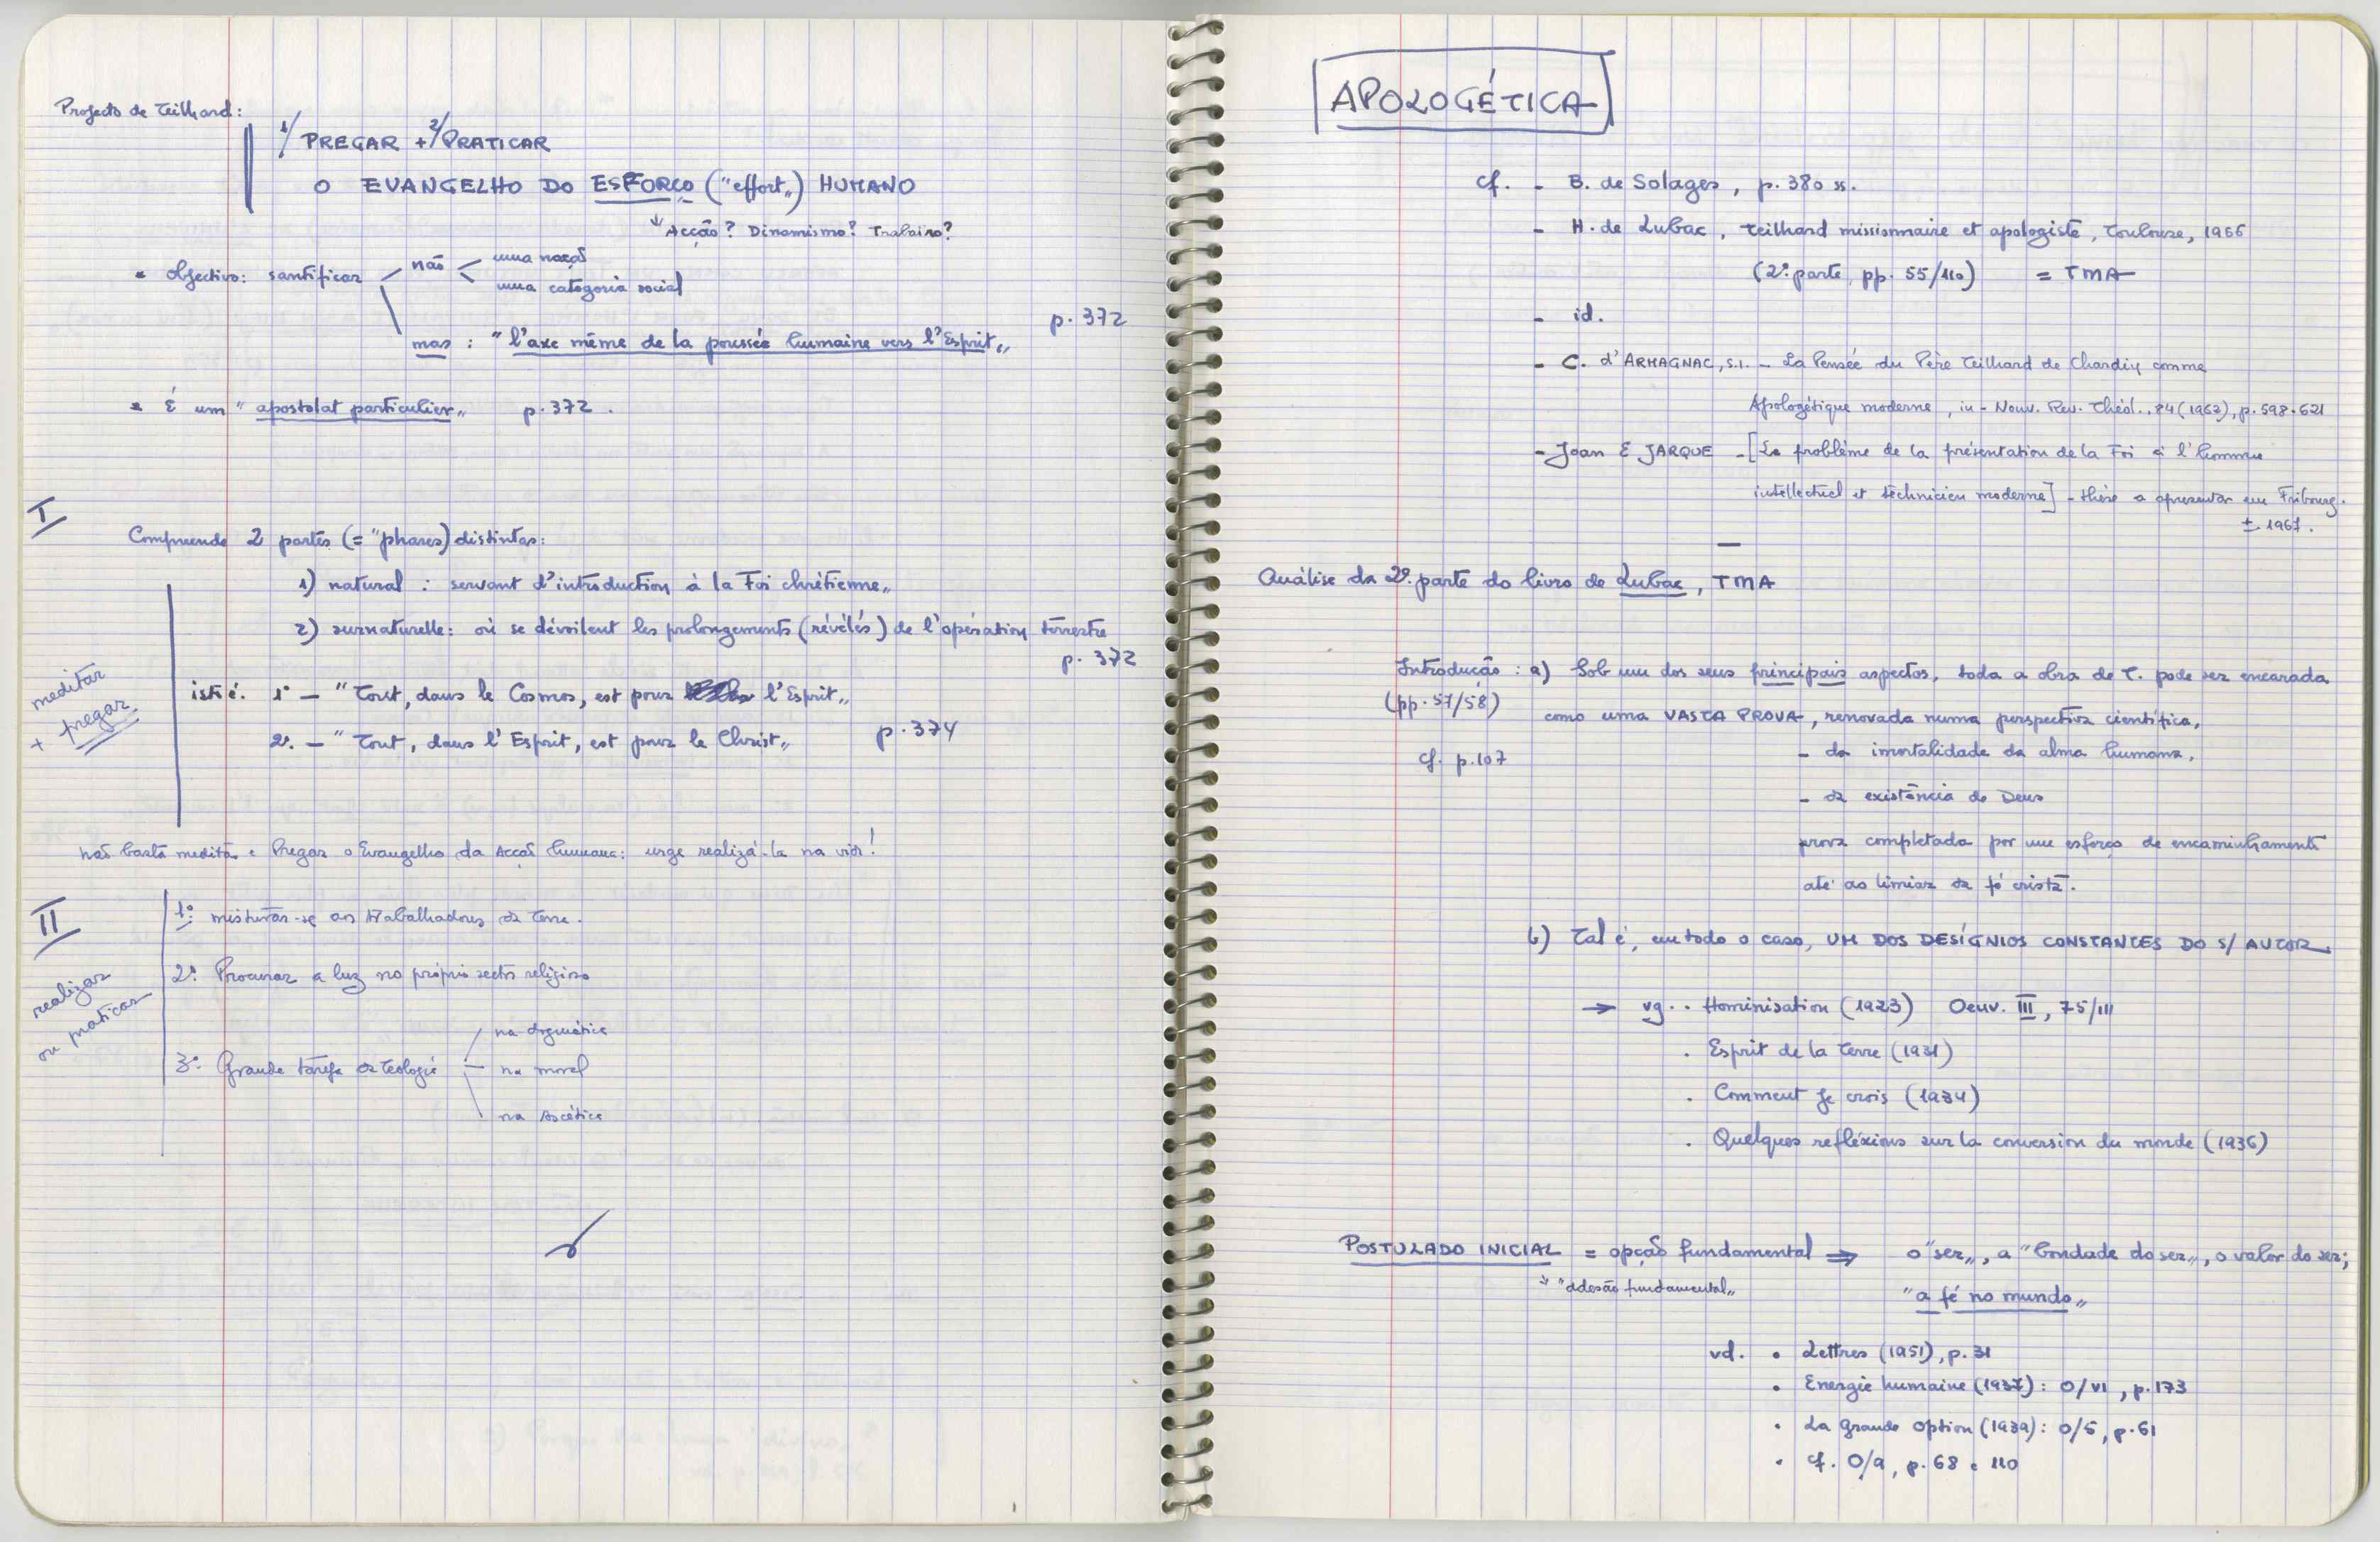 Projecto de Teilhard:
1/ PREGAR + 2/ PRATICAR
O EVANGELHO DO ESFORÇO ("effort„) HUMANO
↓ Acção? Dinamismo? Trabalho?
• Objectivo: santificar não uma nação
uma categoria social
p. 372
mas : "l'axe même de la poussée humaine vers l'Esprit„
• É um "apostolat particulier„ p. 372.
I
Compreende 2 partes (= "phases) distintas:
1) natural : servant d'introduction à la Foi chrétienne„
2) surnaturelle: où se dévoilent les prolongements (révélés) de l'opération terrestre
p. 372
meditar
+ pregar
isto é. 1º — "Tout, dans le Cosmos, est pour l'Esprit„
2º. — "Tout, dans l'Esprit, est pour le Christ„ p. 374
Não basta meditar e Pregar o Evangelho da Acção humana: urge realizá-la na vida!
II
realizar
ou praticar
1º: misturar-se aos trabalhadores da Terra.
2º: Procurar a luz no próprio sector religioso
3º: Grande tarefa da Teologia
na dogmática
na moral
na Ascética
APOLOGÉTICA
cf. - B. de Solages, p. 380 ss.
- H. de Lubac, Teilhard missionnaire et apologiste, Toulouse, 1966
(2ª parte, pp. 55/110) = TMA
- id.
- C. d'ARMAGNAC, S.I. - La Pensée du Père Teilhard de Chardin comme
Apologétique moderne, in - Nouv. Rev. Théol., 84 (1962), p. 598-621
- Joan E JARQUE - [Le problème de la présentation de la Foi à l'homme
intellectuel et technicien moderne] - thèse a apresentar em Fribourg.
± 1967.
—
Análise da 2ª. parte do livro de Lubac, TMA
Introdução : a) Sob um dos seus principais aspectos, toda a obra de T. pode ser encarada
(pp. 57/58) como uma VASTA PROVA, renovada numa perspectiva científica,
cf. p. 107 - da imortalidade da alma humana,
- da existência de Deus
prova completada por um esforço de encaminhamento
até ao limiar da fé cristã.
b) Tal é, em todo o caso, UM DOS DESÍGNIOS CONSTANTES DO S/ AUTOR
→ vg. . Hominisation (1923) Oeuv. III, 75/111
. Esprit de la Terre (1931)
. Comment je crois (1934)
. Quelques refléxions sur la conversion du monde (1936)
POSTULADO INICIAL = opção fundamental ⇒ o "ser„, a "bondade do ser„, o valor do ser;
↓ "adesão fundamental„ "a fé no mundo„
vd. • Lettres (1951), p. 31
• Energie humaine (1937): O/VI, p. 173
• La grande option (1939): O/5, p. 61
• cf. O/9, p. 68 e 110